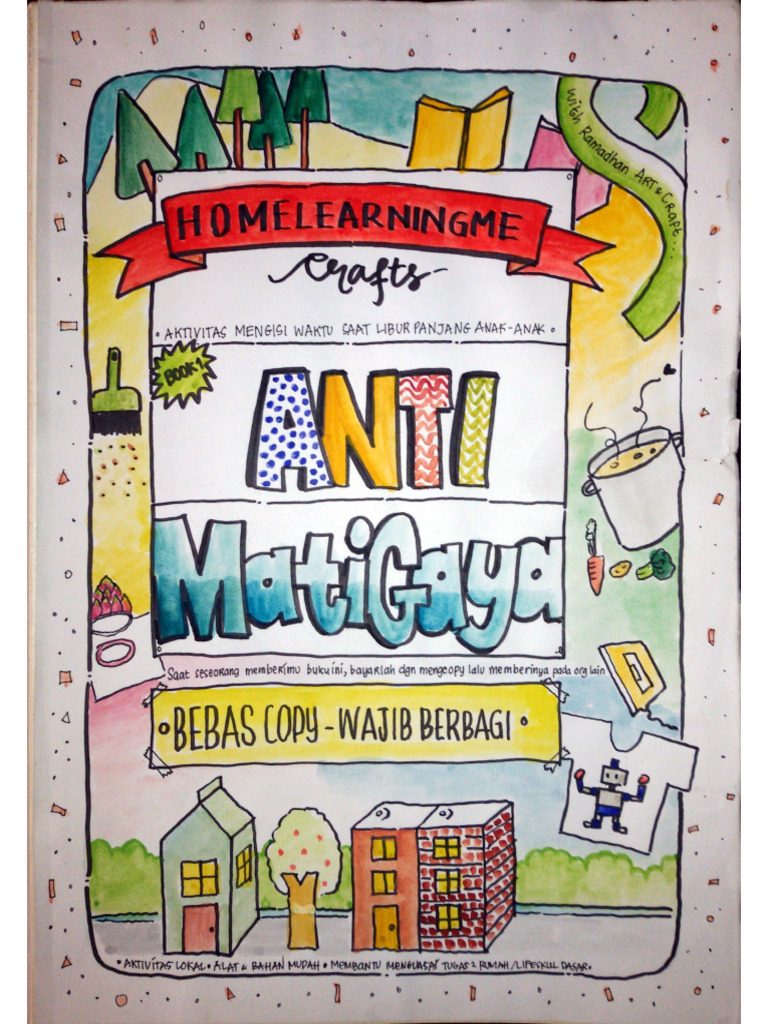 with Ramadhan ART & CRAFT...
HOMELEARNINGME
crafts
• AKTIVITAS MENGISI WAKTU SAAT LIBUR PANJANG ANAK-ANAK •
BOOK 1
ANTI
MatiGaya
Saat seseorang memberimu buku ini, bayarlah dgn mengcopy lalu memberinya pada org lain
• BEBAS COPY - WAJIB BERBAGI •
• AKTIVITAS LOKAL • ALAT & BAHAN MUDAH • MEMBANTU MENGUASAI TUGAS2 RUMAH/LIFESKUL DASAR •